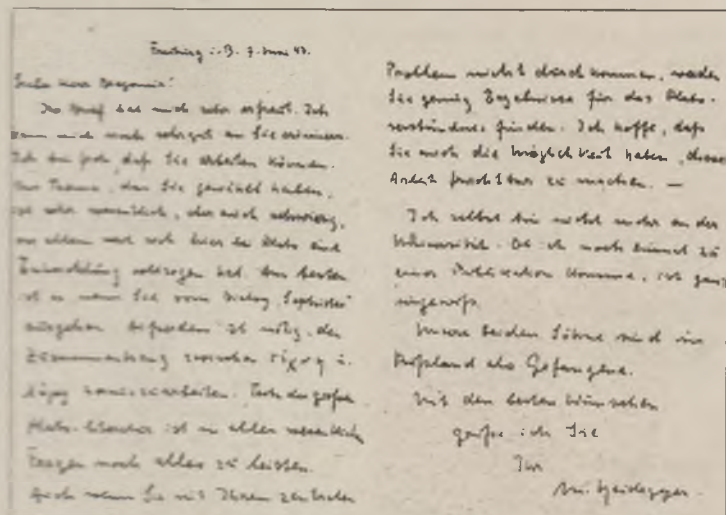 Freiburg i. B. 7. Juni 47.
Ihr Brief hat mich sehr erfreut. Ich
kann mich noch sehr gut an Sie erinnern.
Ich bin froh, daß Sie arbeiten können.
Das Thema, das Sie gewählt haben,
ist sehr wesentlich, aber auch schwierig,
vor allem weil sich hier bei Plato eine
Entwicklung vollzogen hat. Am besten
ist es wenn Sie vom Dialog „Sophistes"
ausgehen. Außerdem ist nötig, den
Zusammenhang zwischen τέχνη u.
λόγος herauszuarbeiten. Trotz der großen
Plato-Literatur ist in allen wesentlichen
Fragen noch alles zu leisten.
Auch wenn Sie mit Ihrem zentralen
Problem nicht durchkommen, werden
Sie genug Ergebnisse für das Plato-
verständnis finden. Ich hoffe, daß
Sie auch die Möglichkeit haben, diese
Arbeit fruchtbar zu machen. —
Ich selbst bin nicht mehr an der
Universität. Ob ich noch einmal zu
einer Publikation komme, ist ganz
ungewiß.
Unsere beiden Söhne sind in
Rußland als Gefangene.
Mit den besten Wünschen
grüße ich Sie
Ihr
M. Heidegger.